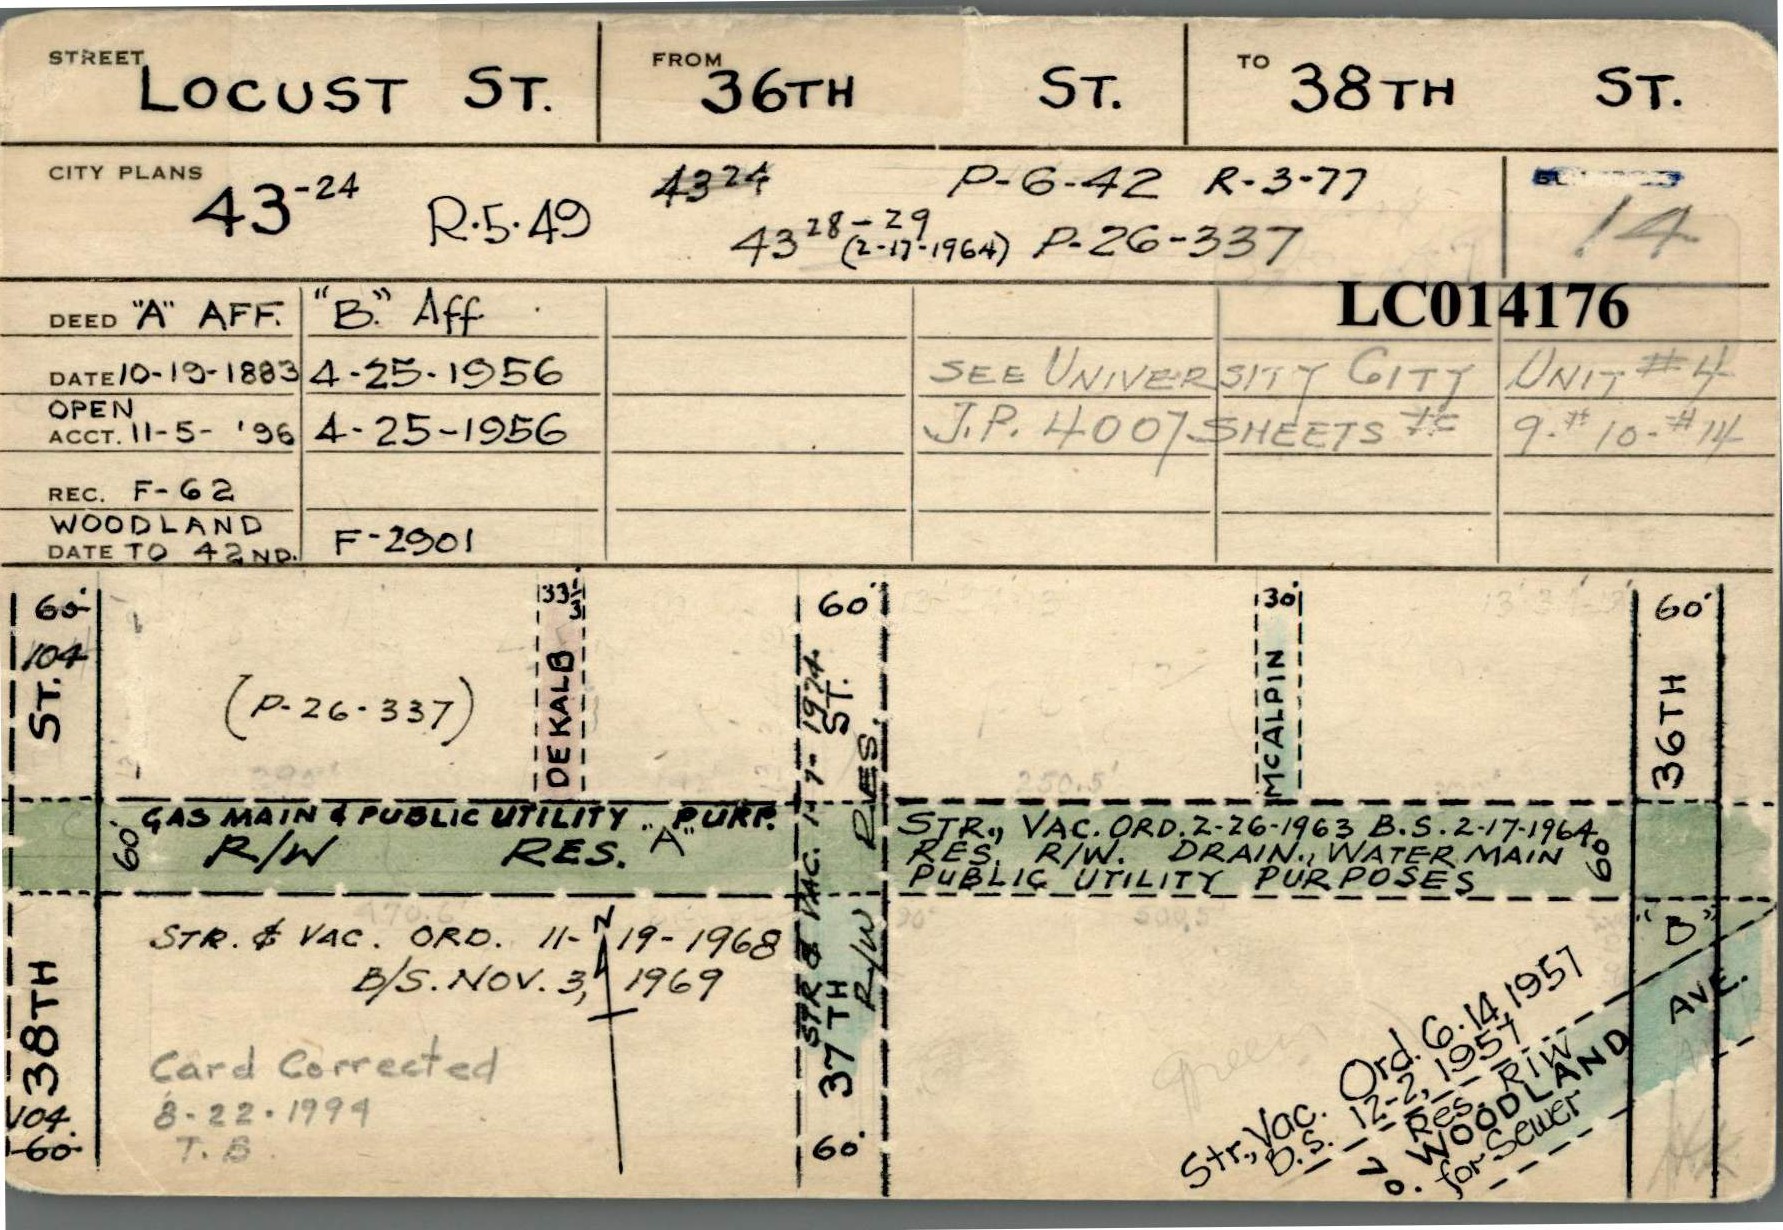 STREET LOCUST ST. FROM 36TH ST. TO 38TH ST.
CITY PLANS 43-24 R.5.49 43 24 P-6-42 R-3-77
43 28-29 (2-17-1964) P-26-337 14
LC014176
DEED "A" AFF. "B." Aff
DATE 10-19-1883 4-25-1956 SEE UNIVERSITY CITY UNIT #4
OPEN
ACCT. 11-5-'96 4-25-1956 J.P. 4007 SHEETS #S 9-#10-#14
REC. F-62
WOODLAND
DATE TO 42ND. F-2901
60' 33 1/3 60' 30' 60'
104
38TH ST.
(P-26-337)
DEKALB
STR & VAC. 1-7-1974
37TH ST.
R/W RES.
MCALPIN
36TH
GAS MAIN & PUBLIC UTILITY PURP.
R/W RES. "A"
60'
STR., VAC. ORD. 2-26-1963 B.S. 2-17-1964
RES. R/W. DRAIN., WATER MAIN
PUBLIC UTILITY PURPOSES
60'
"B"
N
STR. & VAC. ORD. 11-19-1968
B/S. NOV. 3, 1969
Card Corrected
8-22-1994
T.B
104
60'
60'
green
Str., Vac. Ord. 6-14, 1957
B.S. 12-2, 1957
Res. R/W
70. WOODLAND AVE.
for Sewer